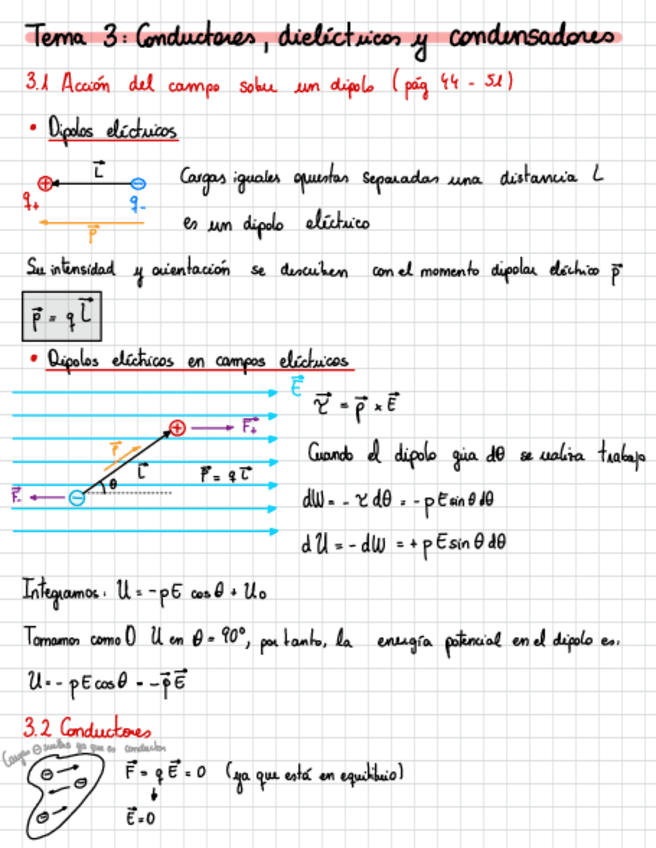 Tema 3: Conductores, dieléctricos y condensadores
3.1 Acción del campo sobre un dipolo (pág 44 - 51)
• Dipolos eléctricos
L⃗
q₊ q₋
p⃗
Cargas iguales opuestas separadas una distancia L
es un dipolo eléctrico
Su intensidad y orientación se describen con el momento dipolar eléctrico p⃗
p⃗ = q L⃗
• Dipolos eléctricos en campos eléctricos
E⃗
τ⃗ = p⃗ × E⃗
F⃗₊
p⃗
L⃗
θ
p⃗ = q L⃗
F⃗₋
Cuando el dipolo gira dθ se realiza trabajo
dW = - τ dθ = - p E sin θ dθ
dU = - dW = + p E sin θ dθ
Integramos: U = -pE cos θ + U₀
Tomamos como 0 U en θ = 90°, por tanto, la energía potencial en el dipolo es:
U = - pE cos θ = - p⃗ E⃗
3.2 Conductores
Cargas ⊖ sueltas ya que es conductor
F⃗ = q E⃗ = 0 (ya que está en equilibrio)
↓
E⃗ = 0